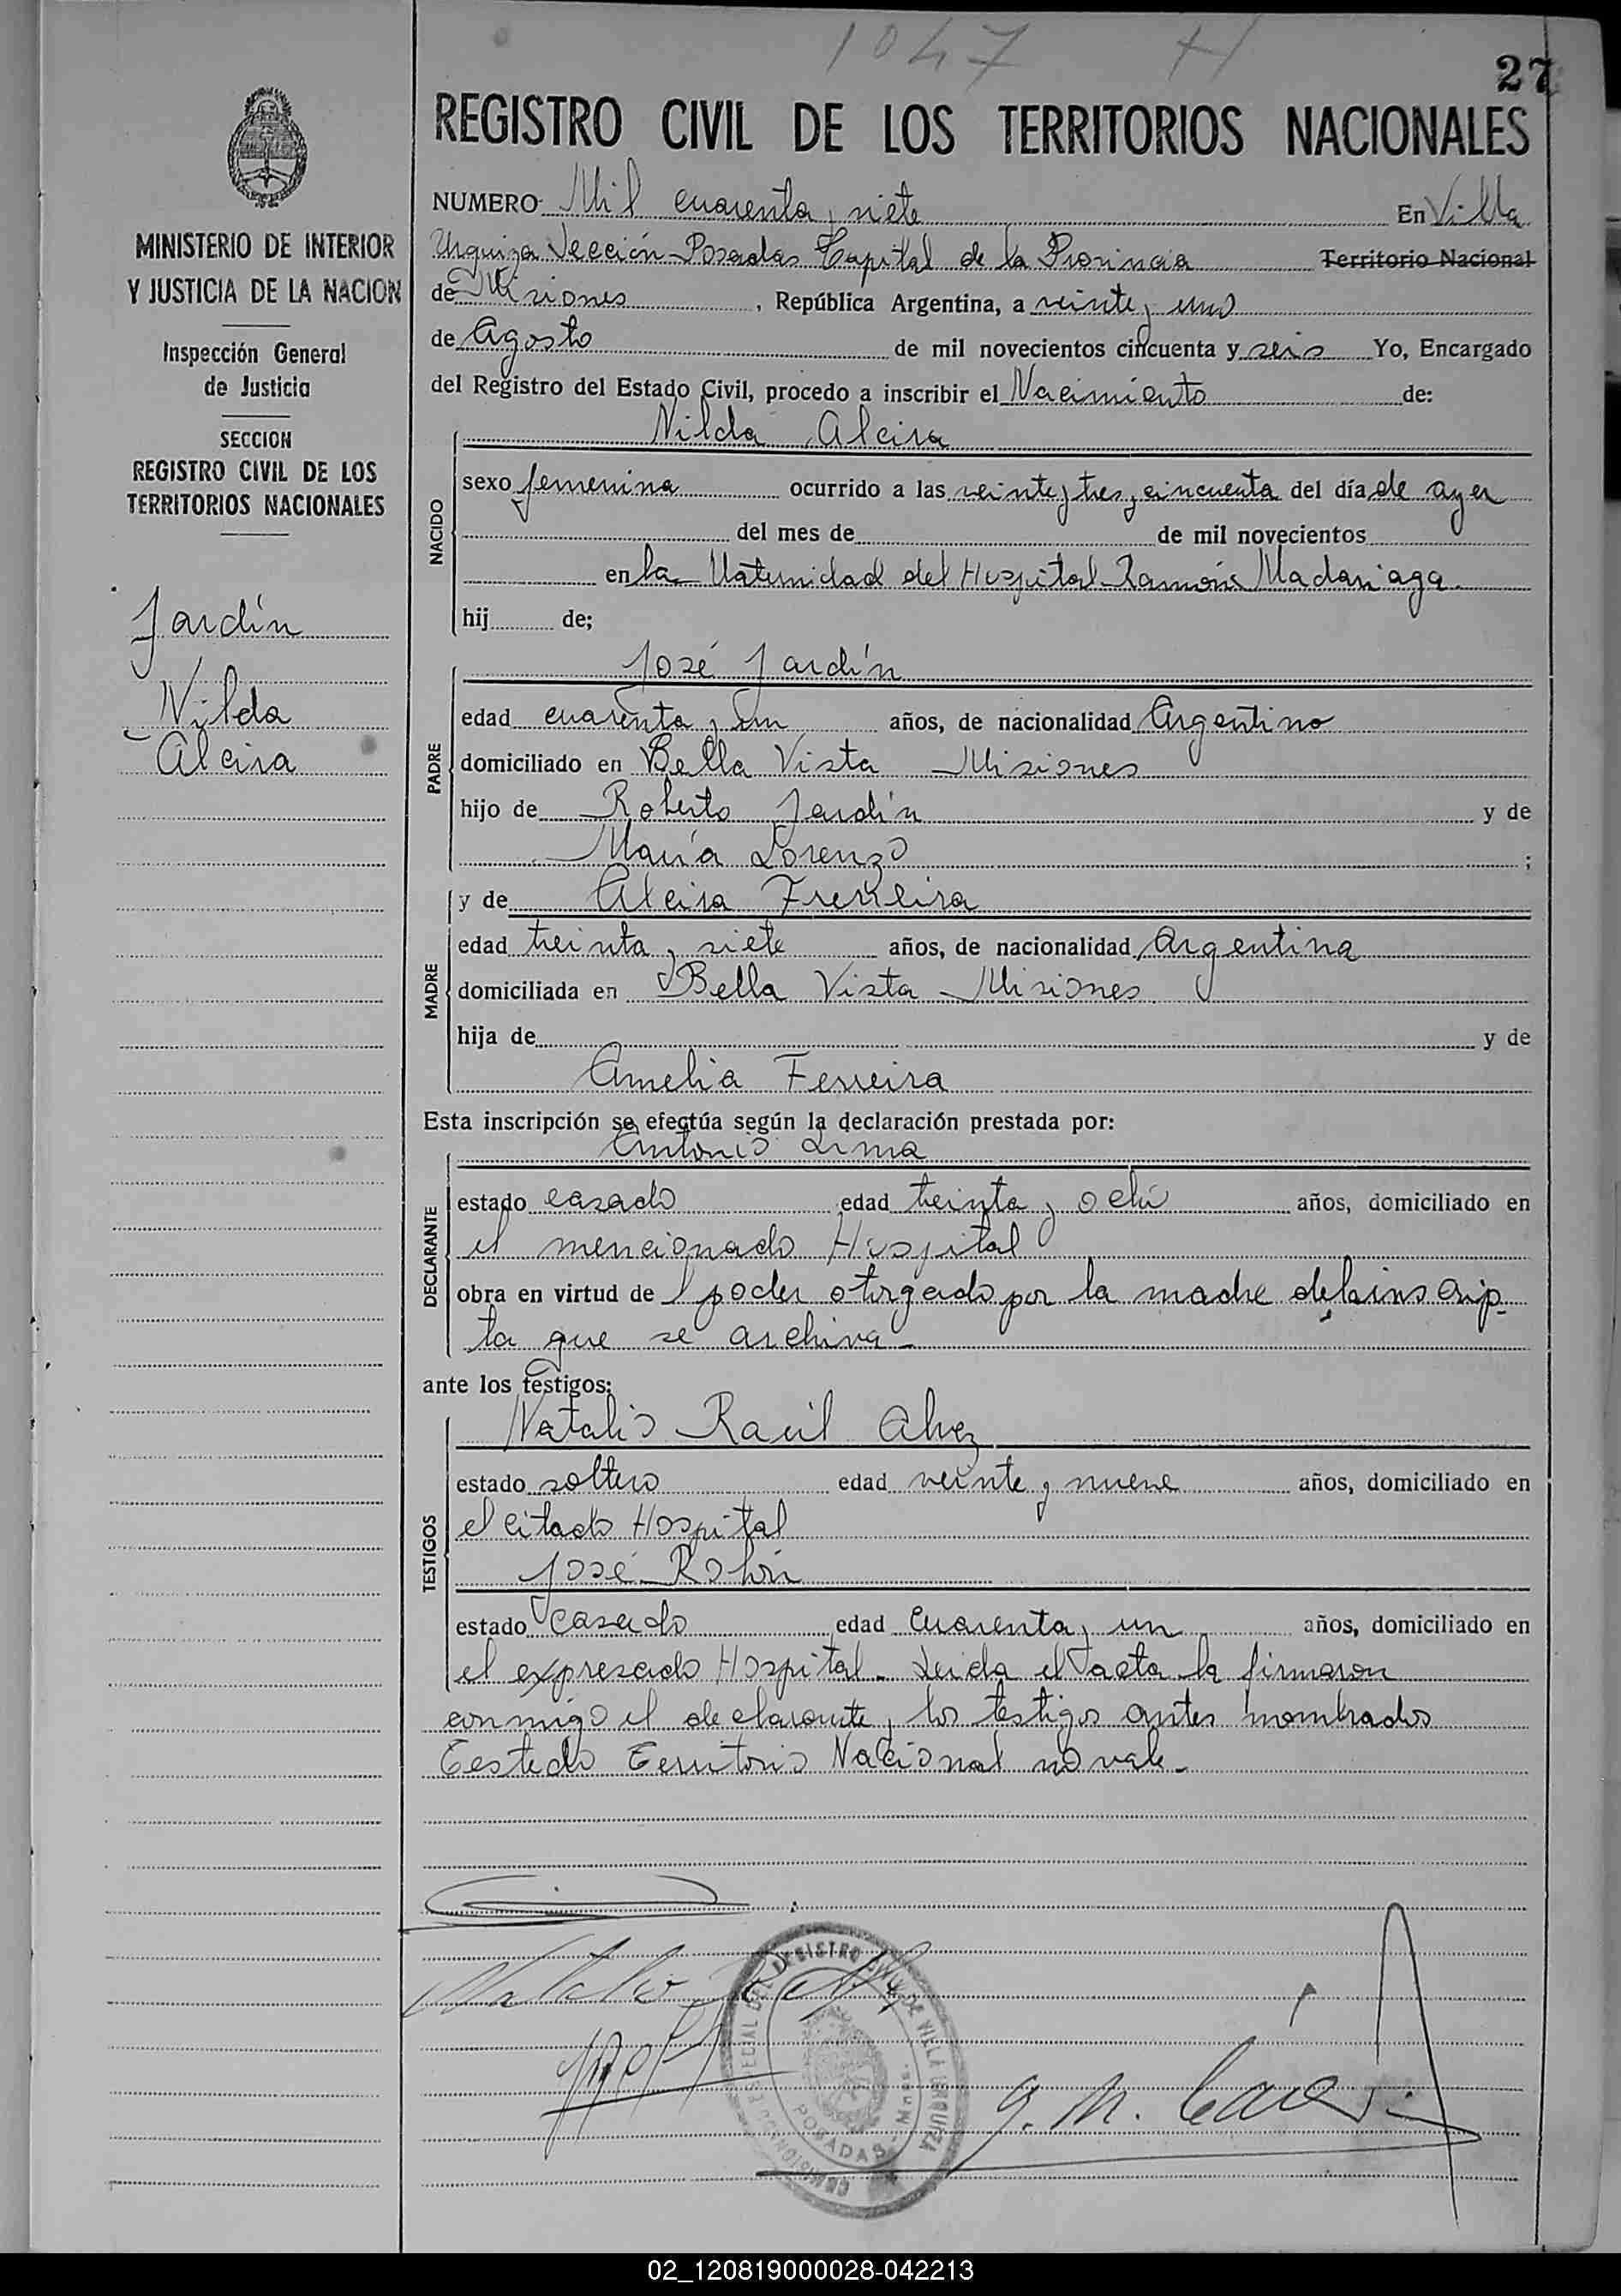 1047 H
27
REGISTRO CIVIL DE LOS TERRITORIOS NACIONALES
MINISTERIO DE INTERIOR
Y JUSTICIA DE LA NACION
Inspección General
de Justicia
SECCION
REGISTRO CIVIL DE LOS
TERRITORIOS NACIONALES
Jardín
Nilda
Alcira
NUMERO Mil cuarenta y siete En Villa
Urquiza Sección Posadas Capital de la Provincia Territorio Nacional
de Misiones, República Argentina, a veinte y uno
de Agosto de mil novecientos cincuenta y seis Yo, Encargado
del Registro del Estado Civil, procedo a inscribir el Nacimiento de:
NACIDO
Nilda Alcira
sexo femenina ocurrido a las veinte y tres y cincuenta del día de ayer
del mes de de mil novecientos
en la Maternidad del Hospital Ramón Madariaga
hij de;
PADRE
José Jardín
edad cuarenta y un años, de nacionalidad Argentino
domiciliado en Bella Vista Misiones
hijo de Roberto Jardín y de
María Lorenzo ;
MADRE
y de Alcira Ferreira
edad treinta y siete años, de nacionalidad Argentina
domiciliada en Bella Vista Misiones
hija de y de
Amelia Ferreira
Esta inscripción se efectúa según la declaración prestada por:
DECLARANTE
Antonio Lima
estado casado edad treinta y ocho años, domiciliado en
el mencionado Hospital
obra en virtud de poder otorgado por la madre de la inscrip-
ta que se archiva-
ante los testigos:
TESTIGOS
Natalio Raúl Alvez
estado soltero edad veinte y nueve años, domiciliado en
el citado Hospital
José
estado casado edad cuarenta y un años, domiciliado en
el expresado Hospital. Leida el acta la firmaron
conmigo el declarante y los testigos antes nombrados
Testado Territorio Nacional no vale-
REGISTRO CIVIL DE VILLA URQUIZA
POSADAS - Mnes.
02_120819000028-042213